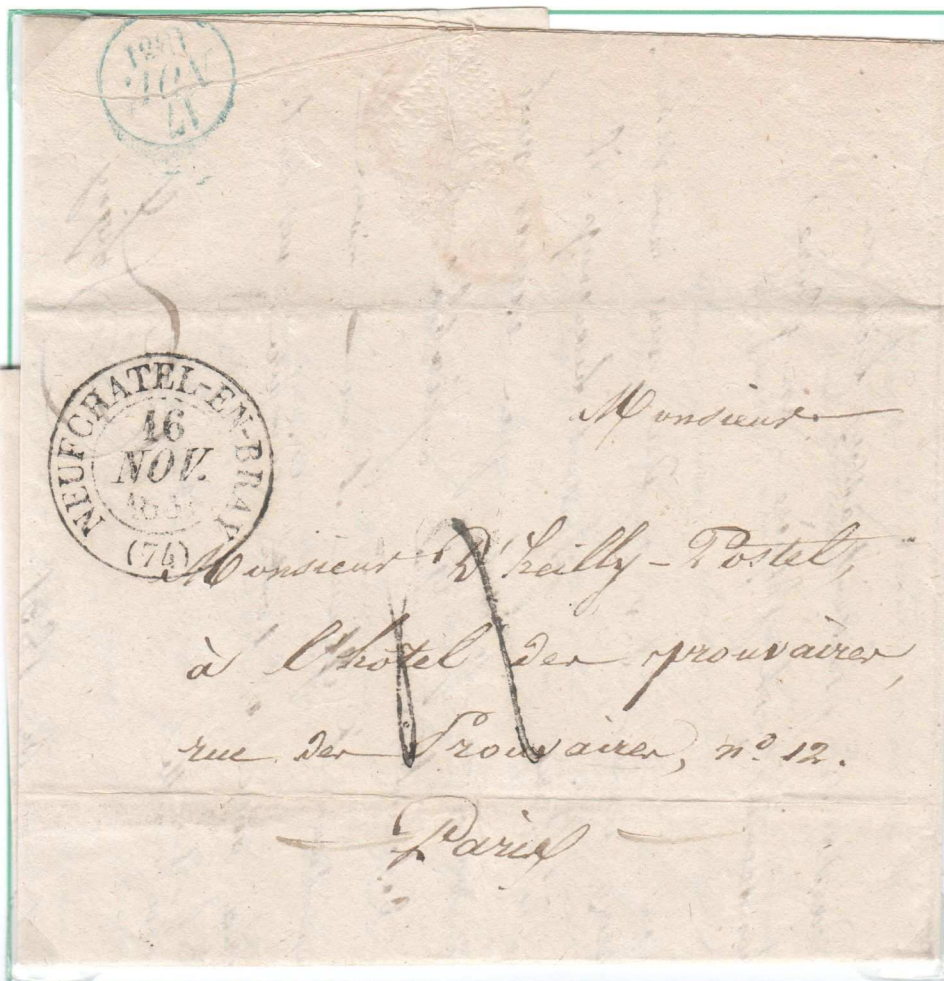 17
NOV
NEUFCHATEL-EN-BRAY
16
NOV.
(74)
Monsieur
Monsieur D'heilly-Postel,
à l'hôtel des prouvaires,
rue des Prouvaires, nº 12.
Paris